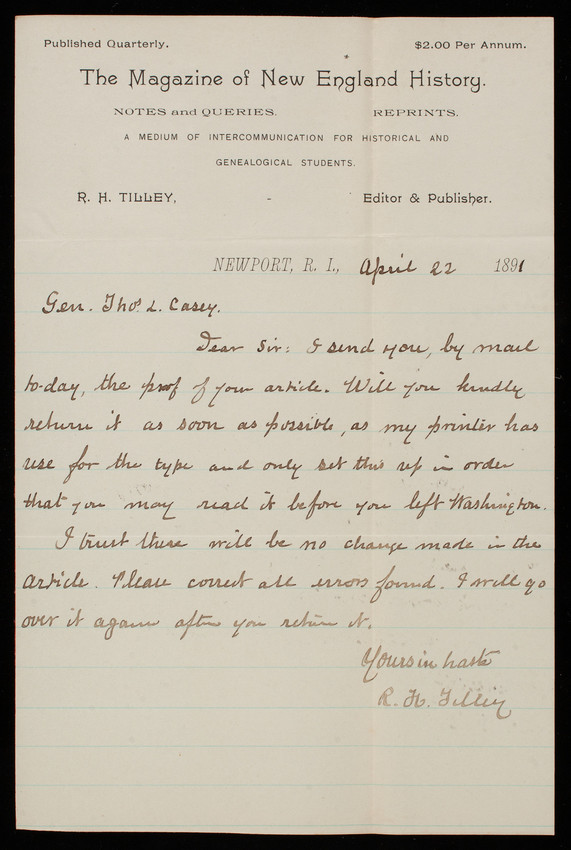 Published Quarterly. $2.00 Per Annum.
The Magazine of New England History.
NOTES and QUERIES. REPRINTS.
A MEDIUM OF INTERCOMMUNICATION FOR HISTORICAL AND
GENEALOGICAL STUDENTS.
R. H. TILLEY, - Editor & Publisher.
NEWPORT, R. I., April 22 1891
Gen. Thos L. Casey.
Dear Sir: I send you, by mail
to-day, the proof of your article. Will you kindly
return it as soon as possible, as my printer has
use for the type and only set this up in order
that you may read it before you left Washington.
I trust there will be no change made in the
article. Please correct all errors found. I will go
over it again after you return it.
Yours in haste
R. H. Tilley